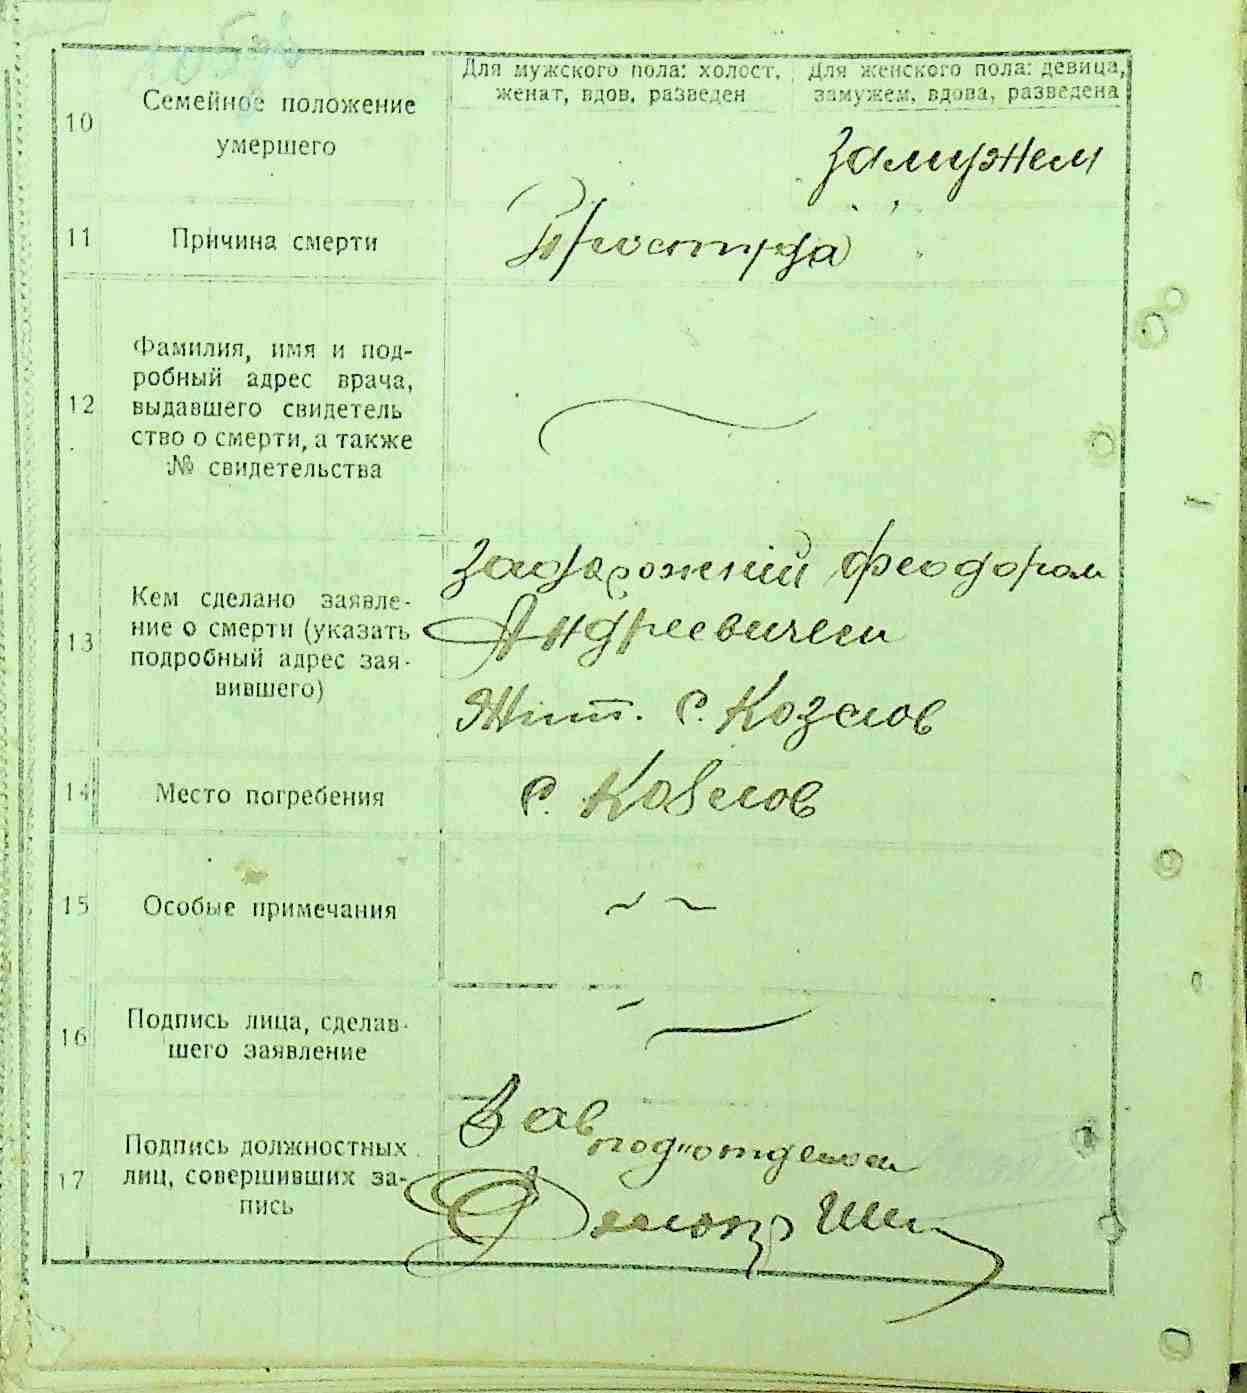 Для мужского пола: холост, женат, вдов, разведен
Для женского пола: девица, замужем, вдова, разведена
10 Семейное положение умершего
замужем
11 Причина смерти
Простуда
12 Фамилия, имя и под-
робный адрес врача,
выдавшего свидетель
ство о смерти, а также
№ свидетельства
13 Кем сделано заявле-
ние о смерти (указать
подробный адрес зая-
вившего)
Феодором
Андреевичем
Жит. с. Козлов
14 Место погребения
с. Козлов
15 Особые примечания
16 Подпись лица, сделав-
шего заявление
17 Подпись должностных
лиц, совершивших за-
пись
Зав
под"отделом